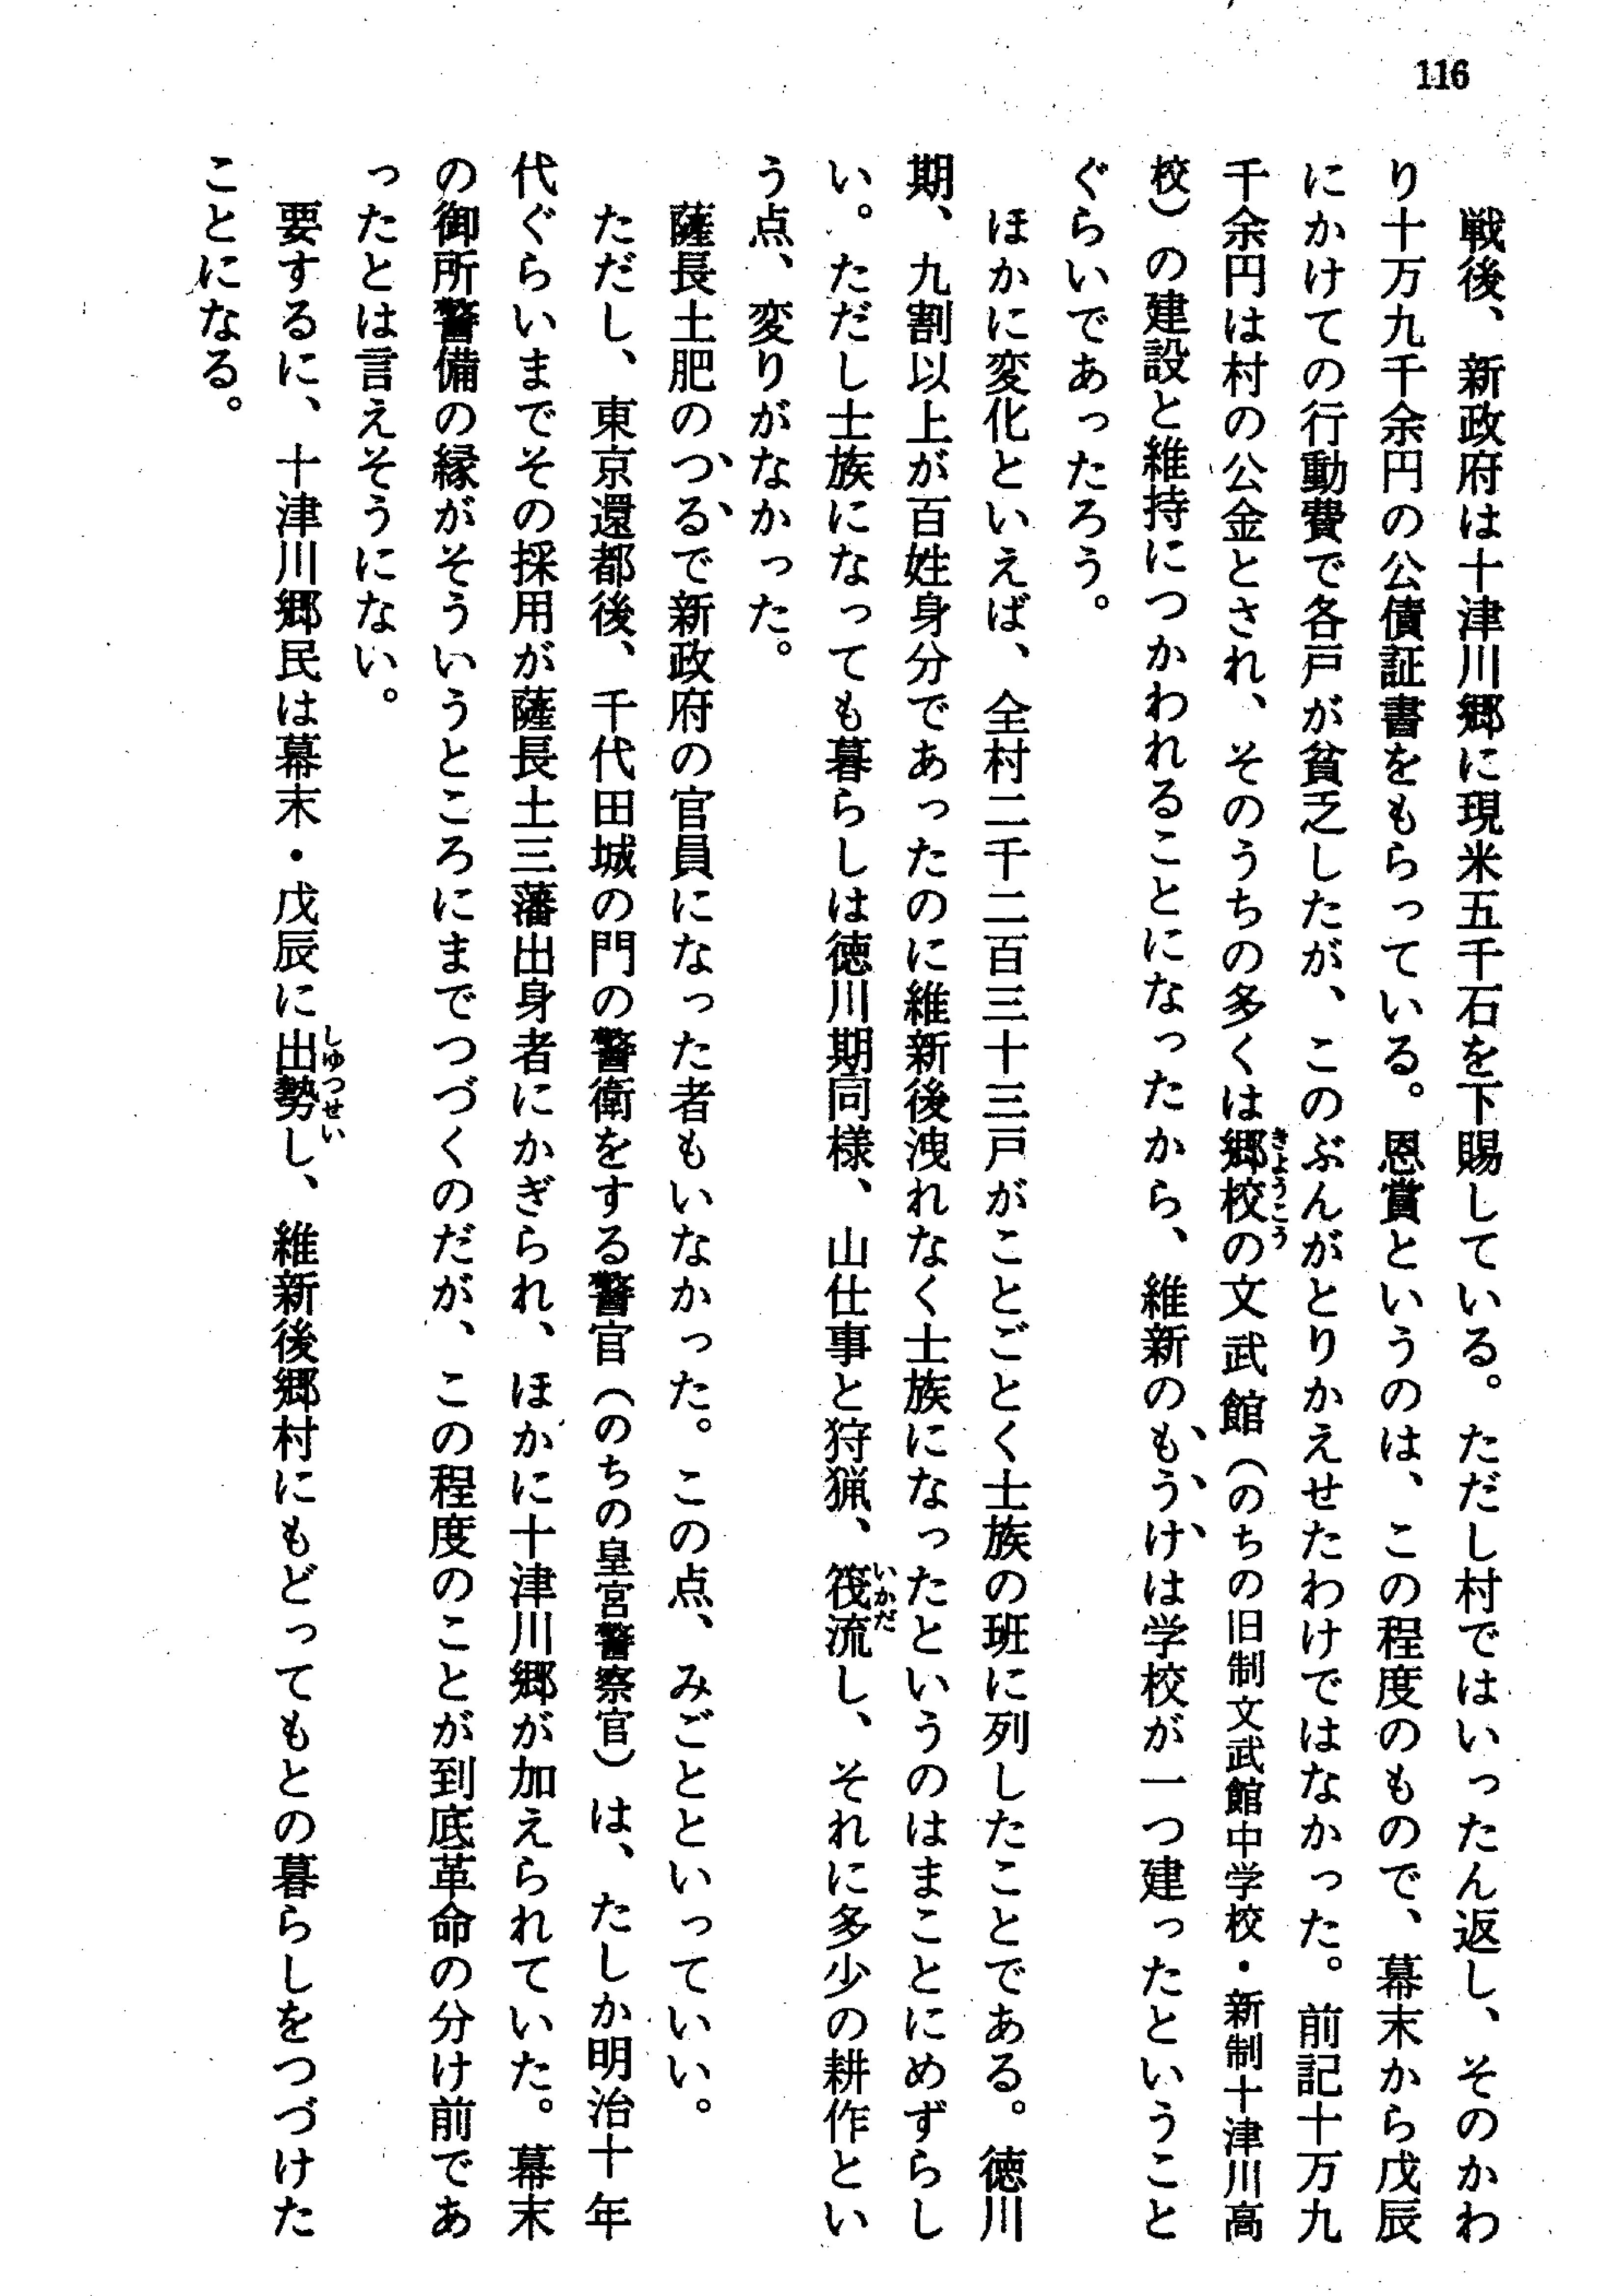 116
戦後、新政府は十津川郷に現米五千石を下賜している。ただし村ではいったん返し、そのかわ
り十万九千余円の公債証書をもらっている。恩賞というのは、この程度のもので、幕末から戊辰
にかけての行動費で各戸が貧乏したが、このぶんがとりかえせたわけではなかった。前記十万九
千余円は村の公金とされ、そのうちの多くは郷校の文武館（のちの旧制文武館中学校・新制十津川高
校）の建設と維持につかわれることになったから、維新のもうけは学校が一つ建ったということ
ぐらいであったろう。
ほかに変化といえば、全村二千二百三十三戸がことごとく士族の班に列したことである。徳川
期、九割以上が百姓身分であったのに維新後洩れなく士族になったというのはまことにめずらし
い。ただし士族になっても暮らしは徳川期同様、山仕事と狩猟、筏流し、それに多少の耕作とい
う点、変りがなかった。
薩長土肥のつるで新政府の官員になった者もいなかった。この点、みごとといっていい。
ただし、東京還都後、千代田城の門の警衛をする警官（のちの皇宮警察官）は、たしか明治十年
代ぐらいまでその採用が薩長土三藩出身者にかぎられ、ほかに十津川郷が加えられていた。幕末
の御所警備の縁がそういうところにまでつづくのだが、この程度のことが到底革命の分け前であ
ったとは言えそうにない。
要するに、十津川郷民は幕末・戊辰に出勢し、維新後郷村にもどってもとの暮らしをつづけた
ことになる。
きょうこう
いかだ
しゅつせい